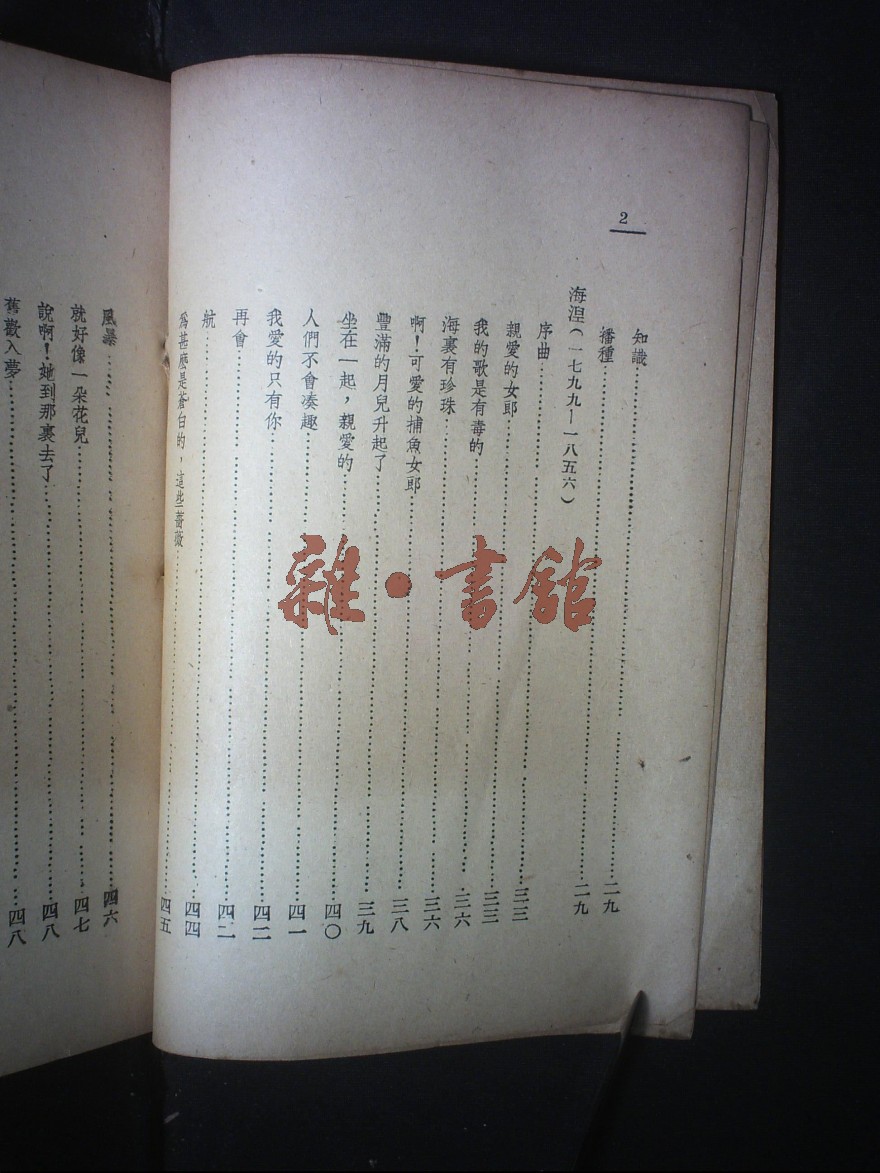 2
知識……二九
播種……二九
海涅(一七九九—一八五六)
序曲……三三
親愛的女郎……三三
我的歌是有毒的……三六
海裏有珍珠……三六
啊!可愛的捕魚女郎……三八
豐滿的月兒升起了……三九
坐在一起,親愛的……四〇
人們不會凑趣……四一
我愛的只有你……四二
再會……四二
航……四四
爲甚麼是蒼白的,這些薔薇……四五
風暴……四六
就好像一朵花兒……四七
說啊!她到那裏去了……四八
舊歡入夢……四八
雜·書館